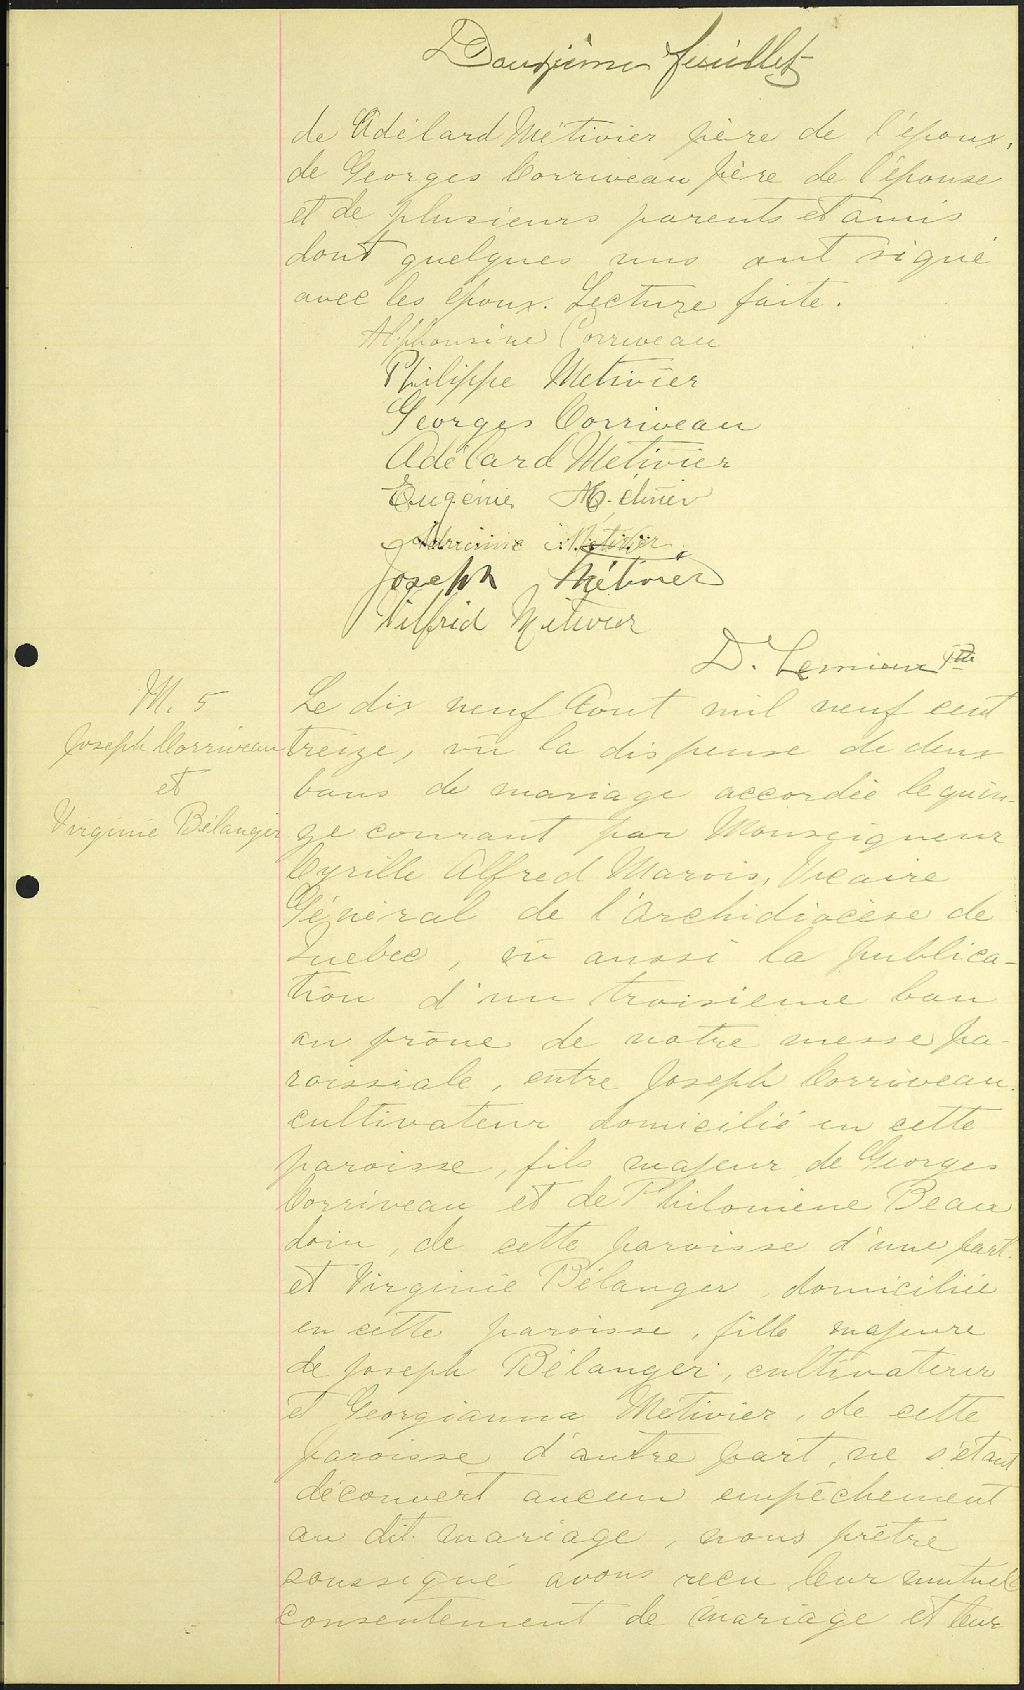 Douzième feuillet
de Adélard Métivier père de l'époux,
de Georges Corriveau père de l'épouse
et de plusieurs parents et amis
dont quelques uns ont signé
avec les époux. Lecture faite.
Alphonsine Corriveau
Philippe Metivier
Georges Corriveau
Adélard Metivier
Eugénie Métivier
Metivier
Joseph Métivier
Wilfrid Métivier
D. Lemieux Ptre
M. 5
Joseph Corriveau
et
Virginie Bélanger
Le dix neuf Aout mil neuf cent
treize, vu la dispense de deux
bans de mariage accordée le quin-
ze courant par Monseigneur
Cyrille Alfred Marois, Vicaire
Général de l'archidiocèse de
Quebec, vu aussi la publica-
tion d'un troisieme ban
au prône de notre messe pa-
roissiale, entre Joseph Corriveau
cultivateur domicilié en cette
paroisse, fils majeur de Georges
Corriveau et de Philomène Beau
doin, de cette paroisse d'une part.
et Virginie Bélanger, domiciliée
en cette paroisse, fille majeure
de Joseph Bélanger, cultivateur
et Georgianna Métivier, de cette
paroisse d'autre part, ne s'étant
découvert aucun empêchement
au dit mariage, nous prêtre
soussigné avons reçu leur mutuel
consentement de mariage et leur